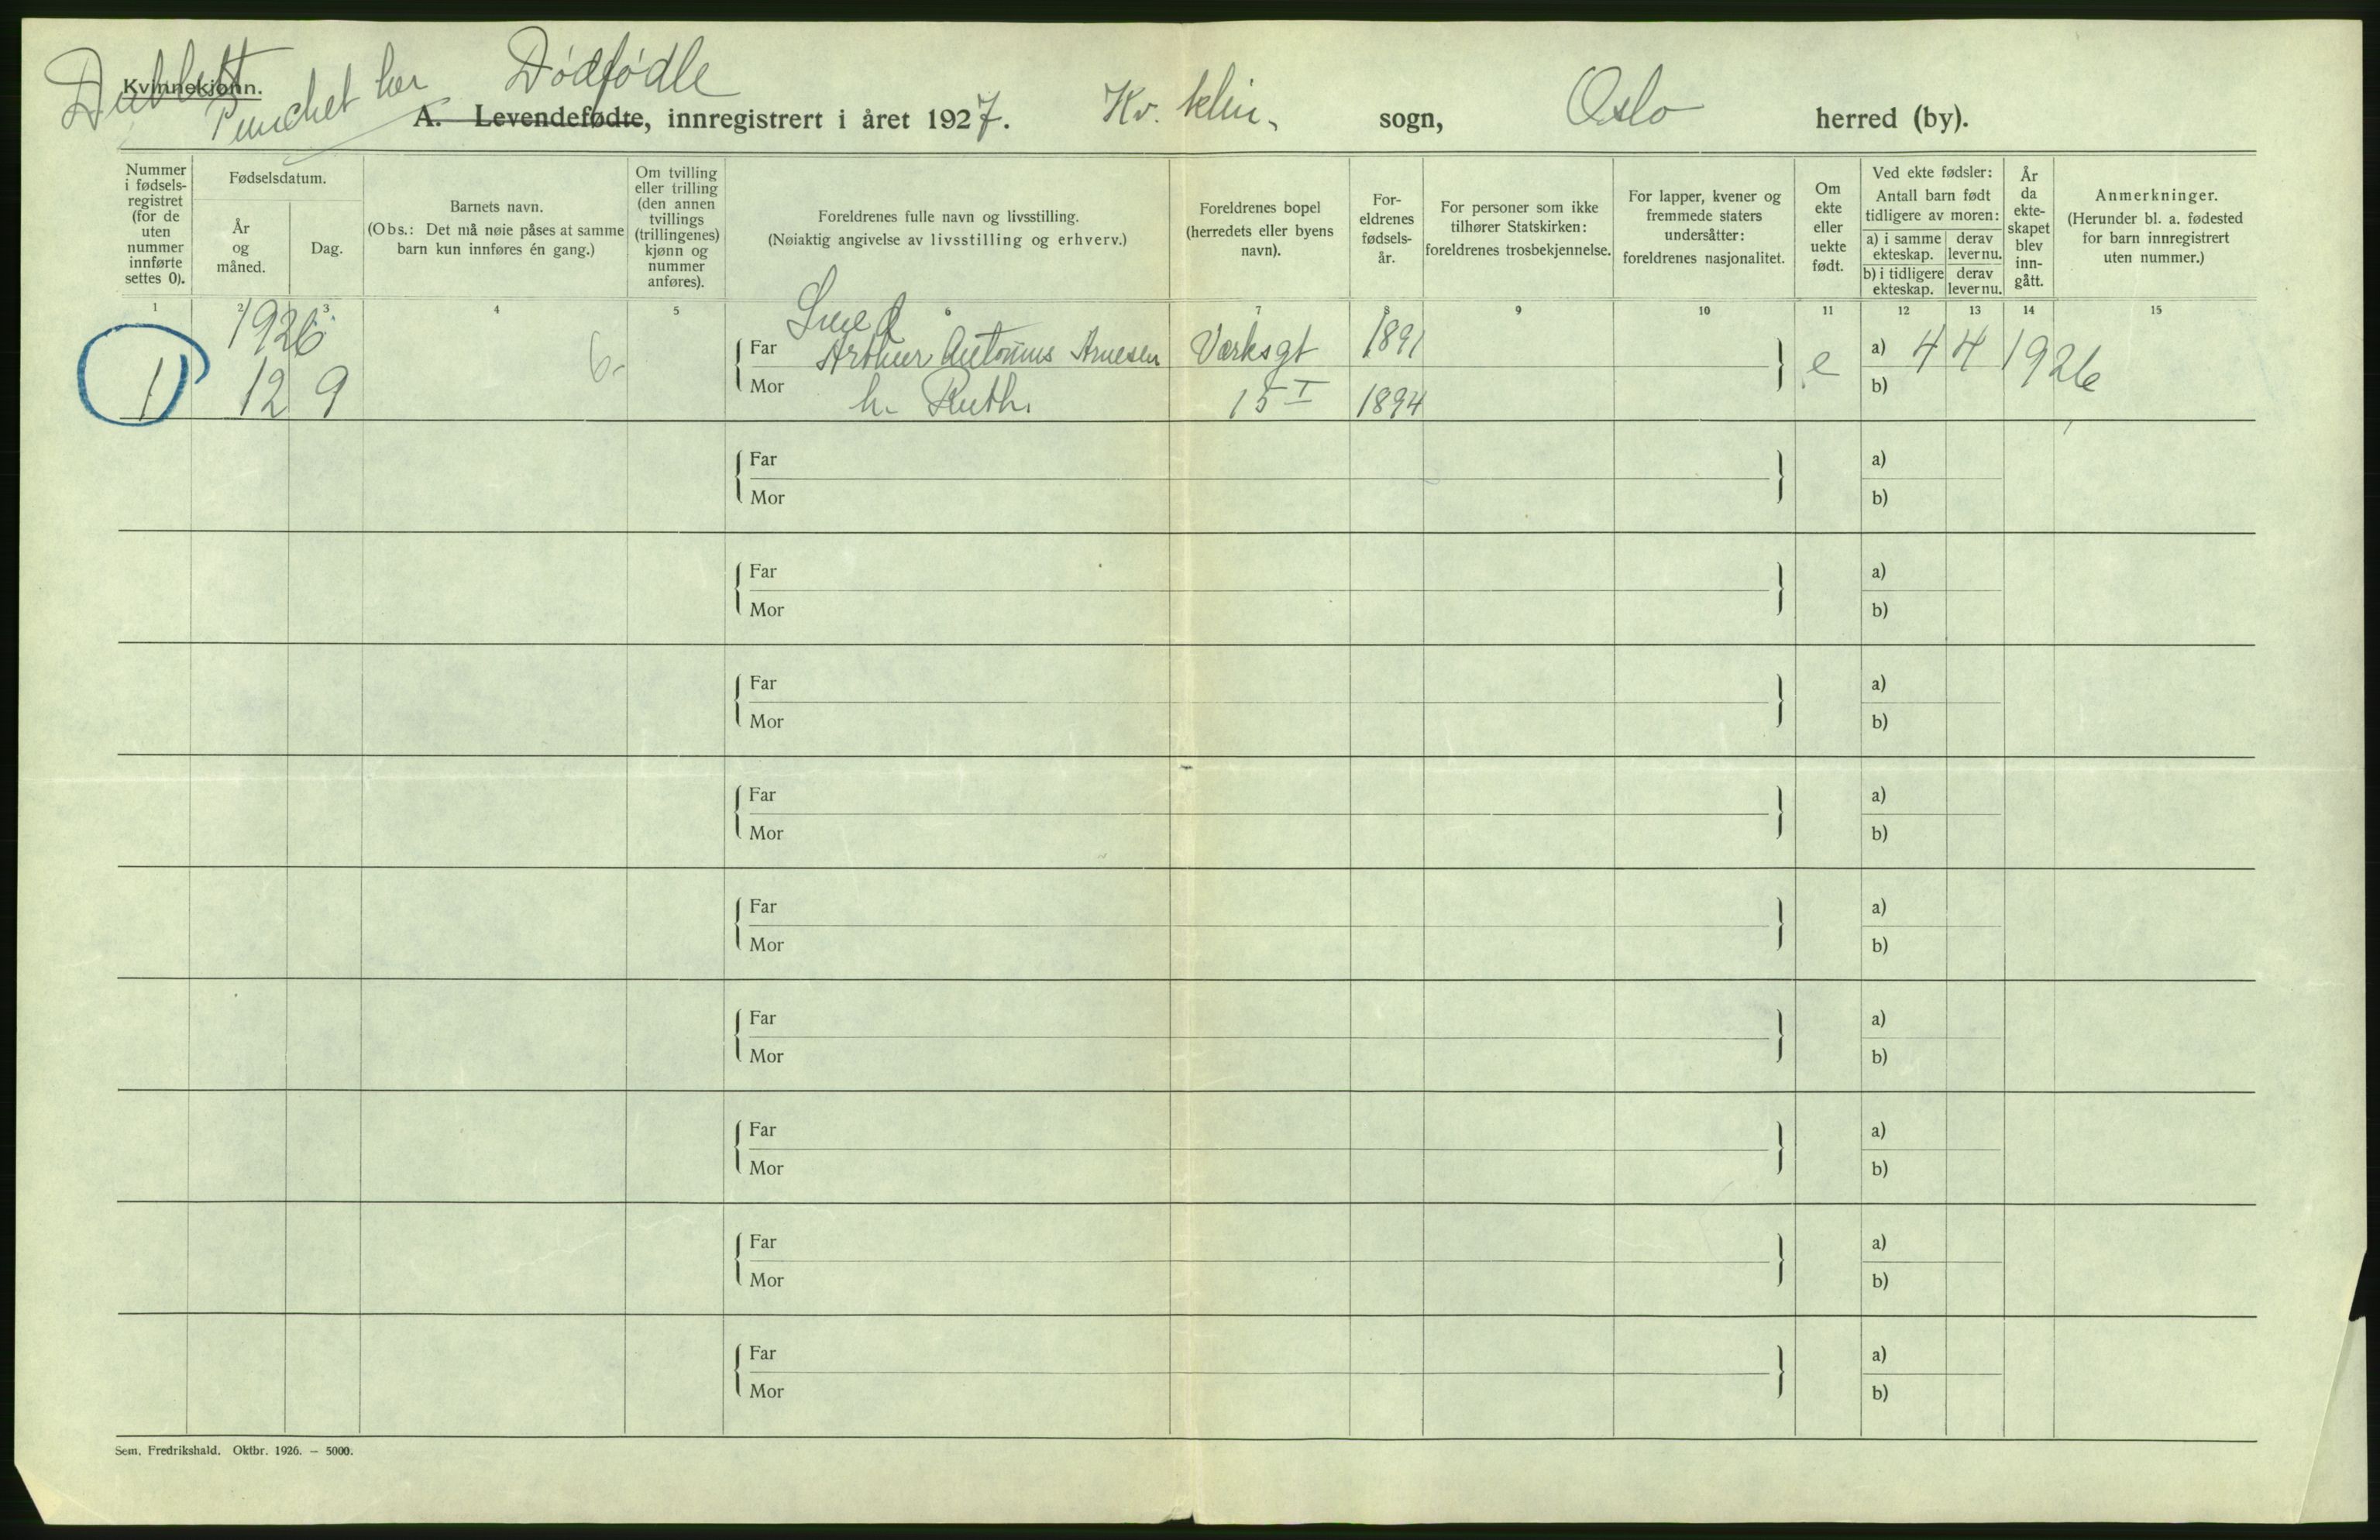 Dublett Dødfødte
Kvinnekjønn.
Punchet her
A. Levendefødte, innregistrert i året 1927. Kv. klin. sogn, Oslo herred (by).
Nummer
i fødsels-
registret
(for de
uten
nummer
innførte
settes 0).
Fødselsdatum.
År
og
måned.
Dag.
Barnets navn.
(Obs.: Det må nøie påses at samme
barn kun innføres én gang.)
Om tvilling
eller trilling
(den annen
tvillings
(trillingenes)
kjønn og
nummer
anføres).
Foreldrenes fulle navn og livsstilling.
(Nøiaktig angivelse av livsstilling og erhverv.)
Foreldrenes bopel
(herredets eller byens
navn).
For-
eldrenes
fødsels-
år.
For personer som ikke
tilhører Statskirken:
foreldrenes trosbekjennelse.
For lapper, kvener og
fremmede staters
undersåtter:
foreldrenes nasjonalitet.
Om
ekte
eller
uekte
født.
Ved ekte fødsler:
Antall barn født
tidligere av moren:
a) i samme
ekteskap.
derav
lever nu.
b) i tidligere
ekteskap.
derav
lever nu.
År
da
ekte-
skapet
blev
inn-
gått.
Anmerkninger.
(Herunder bl. a. fødested
for barn innregistrert
uten nummer.)
1 2 3 4 5 6 7 8 9 10 11 12 13 14 15
1926 Smed
Far Arthur Antonius Arnesen Værksgt 1891 a) 4 4
1 12 9 6. e 1926
Mor h. Ruth. 15 I 1894 b)
Far a)
Mor b)
Far a)
Mor b)
Far a)
Mor b)
Far a)
Mor b)
Far a)
Mor b)
Far a)
Mor b)
Far a)
Mor b)
Far a)
Mor b)
Far a)
Mor b)
Sem. Fredrikshald. Oktbr. 1926. — 5000.